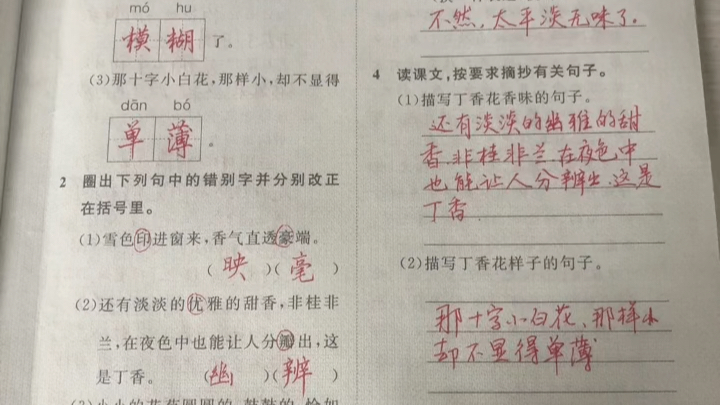 mó hu
模糊了。
(3)那十字小白花,那样小,却不显得
dān bó
单薄。
2 圈出下列句中的错别字并分别改正
在括号里。
(1)雪色印进窗来,香气直透豪端。
(映)(毫)
(2)还有淡淡的优雅的甜香,非桂非
兰,在夜色中也能让人分瓣出,这
是丁香。 (幽)(辨)
不然,太平淡无味了。
4 读课文,按要求摘抄有关句子。
(1)描写丁香花香味的句子。
还有淡淡的幽雅的甜
香非桂非兰在夜色中
也能让人分辨出这是
丁香.
(2)描写丁香花样子的句子。
那十字小白花、那样小
却不显得单薄